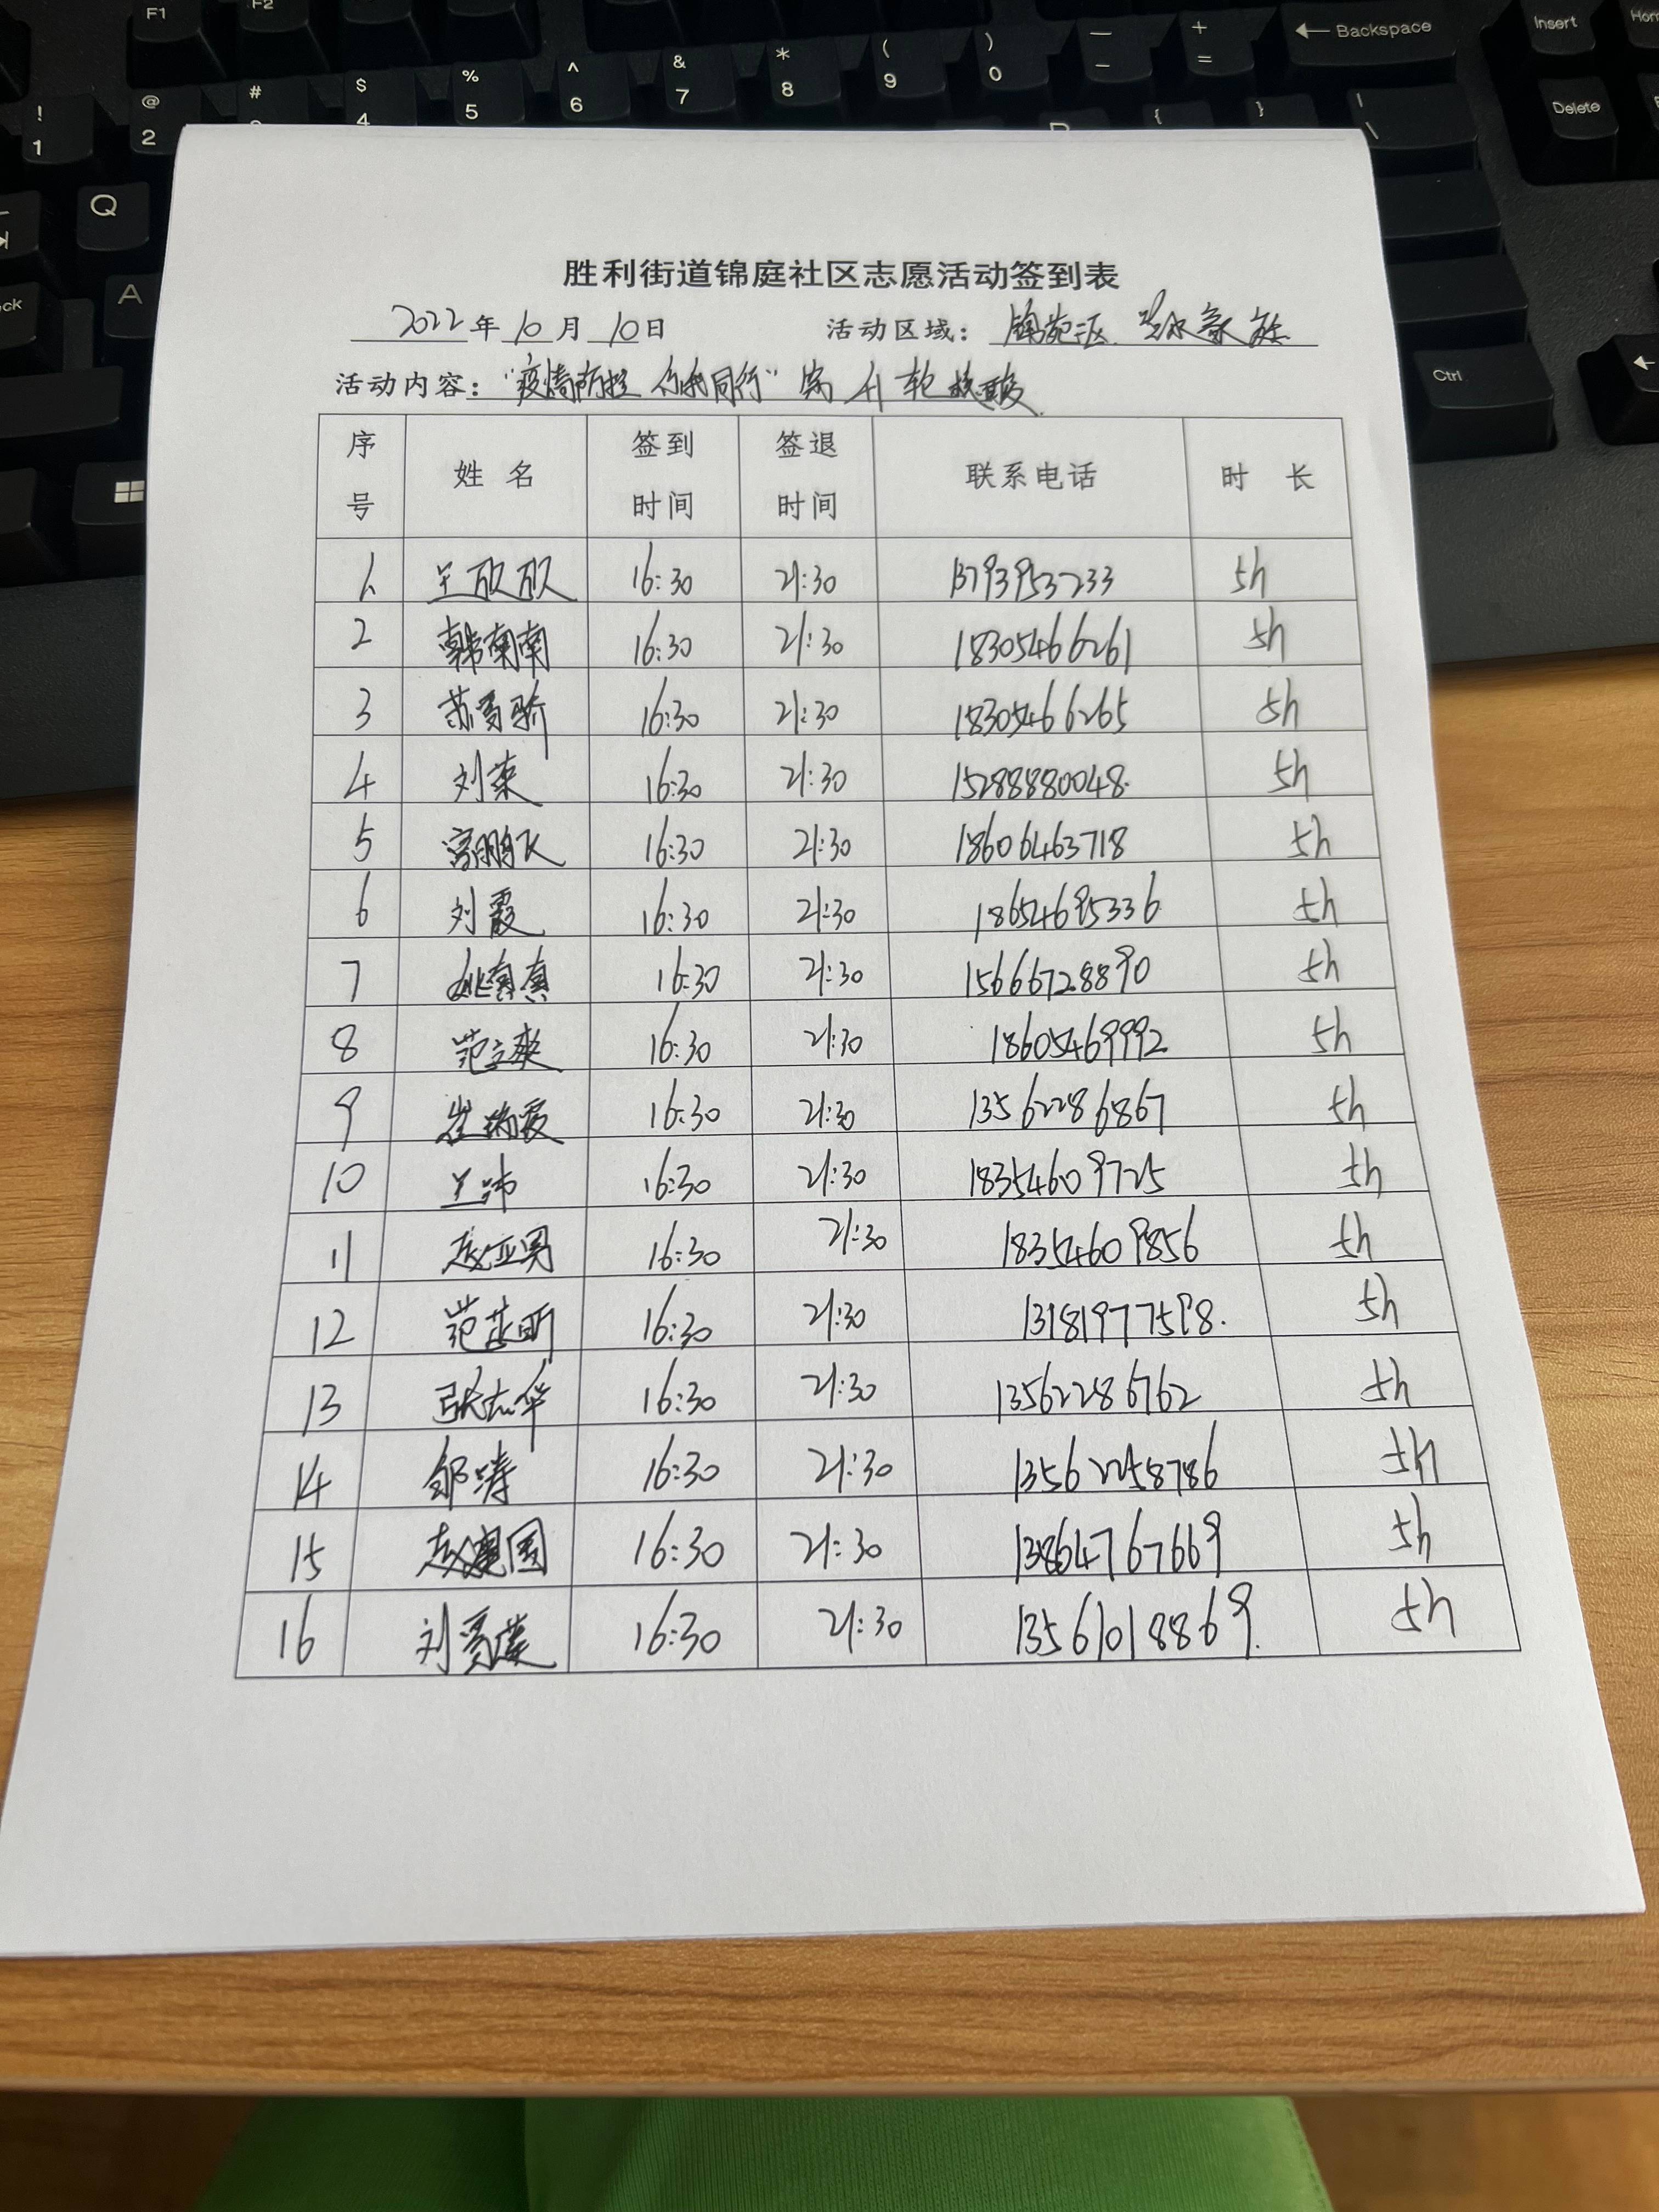 F1
F2
! @ # $ % ^ & * ( ) — + ← Backspace Insert
1 2 4 5 6 7 8 9 0 - = Delete
{ } |
\
Q
A
Ctrl
胜利街道锦庭社区志愿活动签到表
2022年10月10日 活动区域: 锦苑二区
活动内容: "疫情防控 你我同行" 第 轮核酸
序号 姓名 签到时间 签退时间 联系电话 时长
1 王欣欣 16:30 21:30 13793953233 5h
2 韩南南 16:30 21:30 18305466261 5h
3 苏秀骄 16:30 21:30 18305466265 5h
4 刘荣 16:30 21:30 15288880048. 5h
5 宫鹏飞 16:30 21:30 18606463718 5h
6 刘霞 16:30 21:30 18654695336 5h
7 姚真真 16:30 21:30 15666728890 5h
8 范立爽 16:30 21:30 18605469992 5h
9 崔瑞霞 16:30 21:30 13562286867 5h
10 王沛 16:30 21:30 18354609725 5h
11 赵亚男 16:30 21:30 18354609856 5h
12 范 昕 16:30 21:30 13181977598. 5h
13 张志华 16:30 21:30 13562286762 5h
14 邹涛 16:30 21:30 13562258786 5h
15 赵建国 16:30 21:30 13864767669 5h
16 刘秀英 16:30 21:30 13561018869. 5h